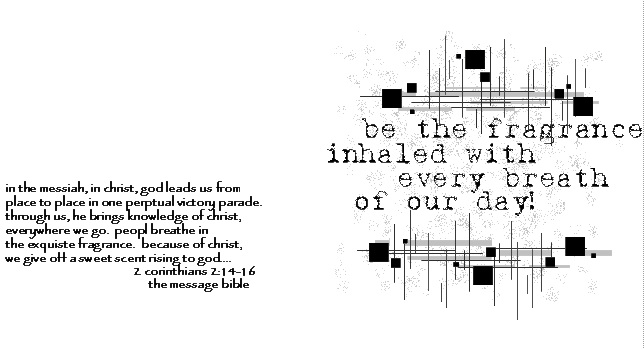 be the fragrance
inhaled with
every breath
of our day!
in the messiah, in christ, god leads us from
place to place in one perptual victory parade.
through us, he brings knowledge of christ,
everywhere we go. peopl breathe in
the exquisite fragrance. because of christ,
we give off a sweet scent rising to god....
2 corinthians 2:14-16
the message bible